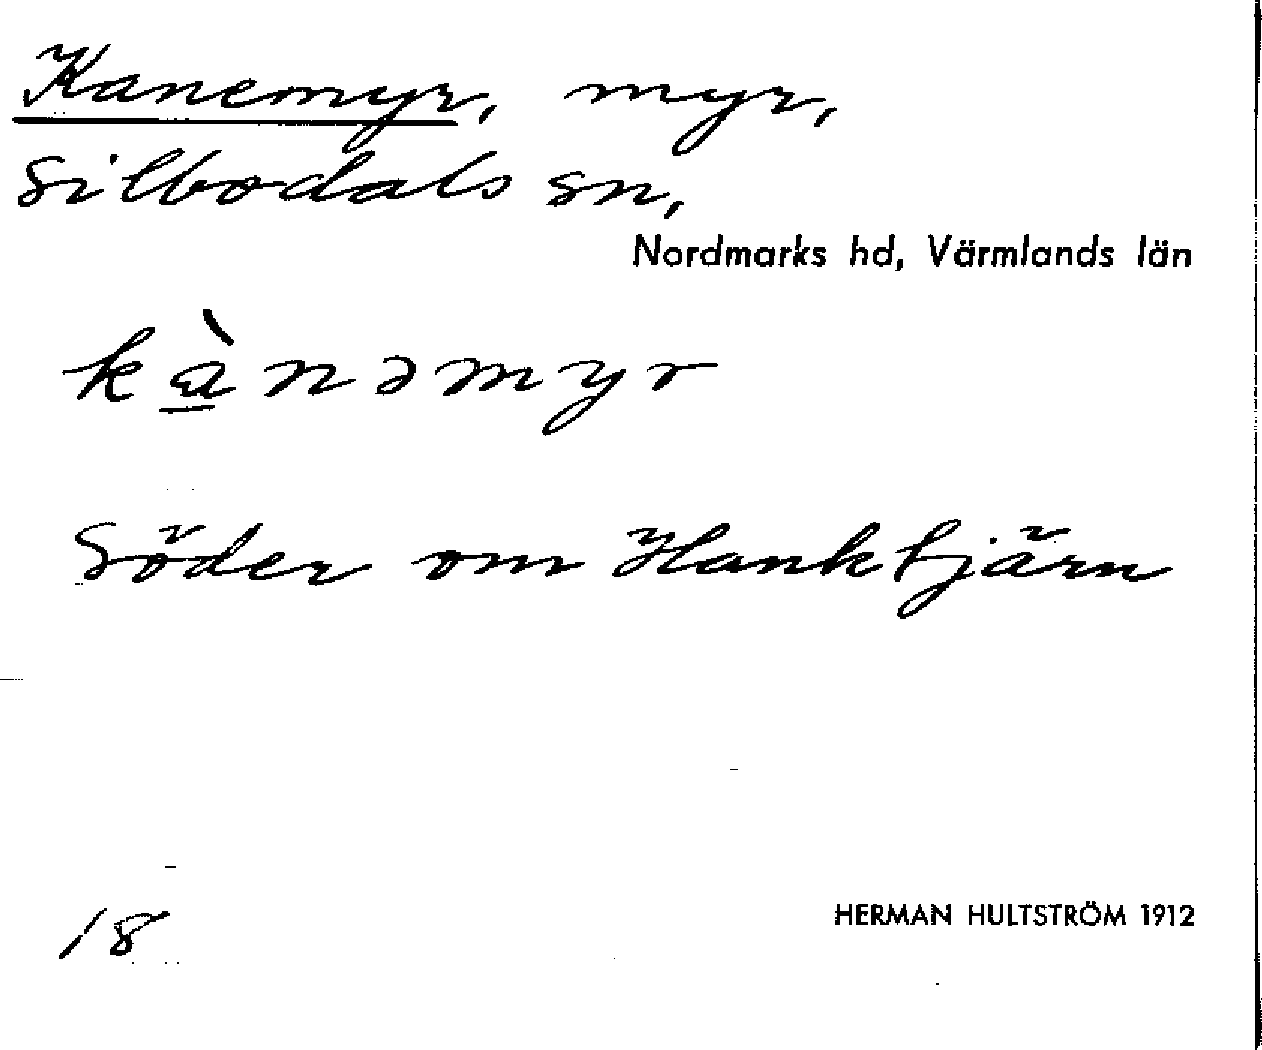 Kanemyr, myr,
Silbodals sn,
Nordmarks hd, Värmlands län
kànəmyr
Söder om Hanktjärn
18
HERMAN HULTSTRÖM 1912